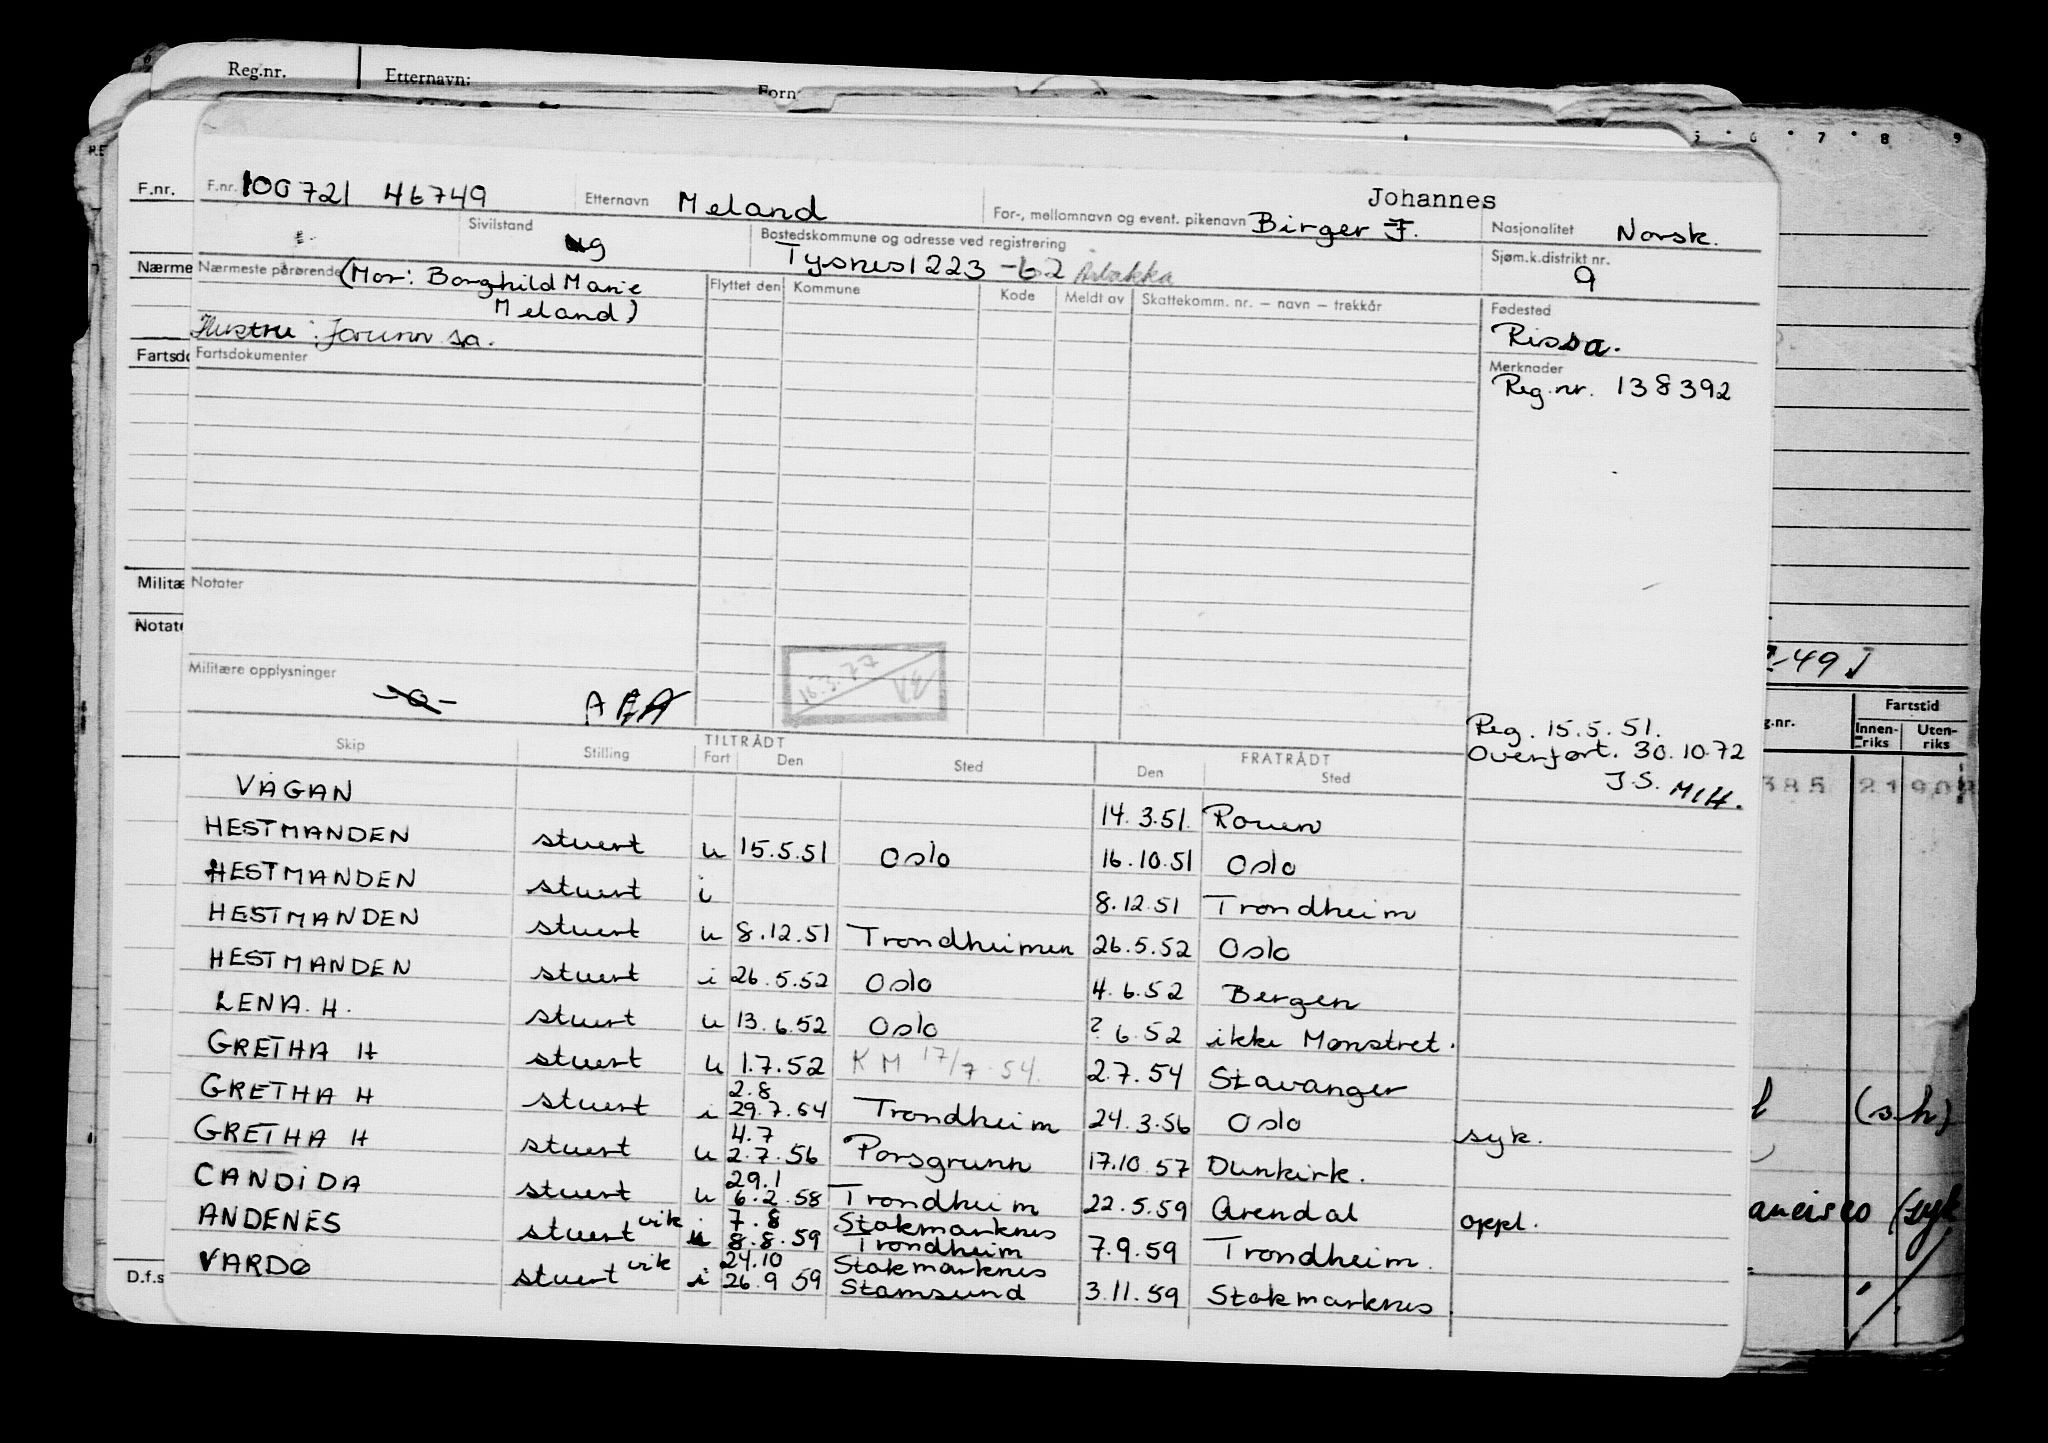 Reg.nr. Etternavn: Forn
5 6 7 8 9
F.nr. F.nr. 100721 46749 Etternavn Meland For-, mellomnavn og event. pikenavn Birger J. Johannes Nasjonalitet Norsk.
Sivilstand ug Bostedskommune og adresse ved registrering Tysnes 1223 -62 Sjøm.k.distrikt nr. 9
Nærme Nærmeste pårørende (Mor: Borghild Marie
Meland)
Hustru: Jorunn sa.
Flyttet den Kommune Kode Meldt av Skattekomm. nr. – navn – trekkår
Fødested
Rissa.
Fartsdo Fartsdokumenter
Merknader
Reg.nr. 138392
Militæ Notater
Notate
Militære opplysninger
16.3.77
-49
g.nr. Fartstid
Innen-riks Uten-riks
385 21908
Reg. 15.5.51.
Overført. 30.10.72
J.S. MIH.
TILTRÅDT FRATRÅDT
Skip Stilling Fart Den Sted Den Sted
VÅGAN 14.3.51. Rouen
HESTMANDEN stuert u 15.5.51 Oslo 16.10.51 Oslo
HESTMANDEN stuert i 8.12.51 Trondheim
HESTMANDEN stuert u 8.12.51 Trondheimen 26.5.52 Oslo
HESTMANDEN stuert i 26.5.52 Oslo 4.6.52 Bergen
LENA. H. stuert u 13.6.52 Oslo ? 6.52 ikke Mønstret.
GRETHA H stuert u 1.7.52 KM 17/7.54. 2.7.54 Stavanger
GRETHA H stuert i 2.8 29.7.54 Trondheim 24.3.56 Oslo syk.
GRETHA H stuert u 4.7 2.7.56 Porsgrunn 17.10.57 Dunkirk.
CANDIDA stuert u 29.1 6.2.58 Trondheim 22.5.59 Arendal oppl.
ANDENES stuert vik 7.8 8.8.59 Stokmarknes Trondheim 7.9.59 Trondheim.
VARDØ stuert vik i 24.10 26.9 59 Stokmarknes Stamsund 3.11.59 Stokmarknes.
(s.h)
ancisco (syk
D.f.s